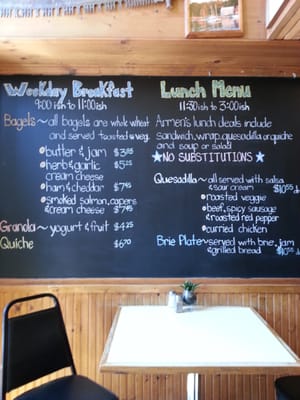 Weekday Breakfast
9:00ish to 11:00ish
Bagels~ all bagels are whole wheat
and served toasted w veg.
butter & jam $3.25
herb & garlic $5.25
cream cheese
ham & cheddar $7.45
smoked salmon, capers
& cream cheese $7.45
Granola~ yogurt & fruit $4.25
Quiche $6.70
Lunch Menu
11:30ish to 3:00ish
Armen's lunch deals include
sandwich, wrap, quesadilla or quiche
and soup or salad
★NO SUBSTITUTIONS★
Quesadilla~ all served with salsa
& sour cream $10.55
roasted veggie
beef, spicy sausage
& roasted red pepper
curried chicken
Brie Plate~ served with brie, jam
& grilled bread $10.55